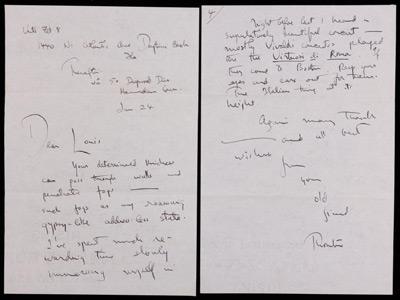 Until Feb 8
1440 No Atlantic Ave Daytona Beach
Fla
Thereafter
50 Deepwood Drive
Hamden Conn.
Jan 24
Dear Louis
Your determined kindness
can pass through walls and
penetrate fogs —
such fogs as my recurring
gypsy-like address-less state.
I've spent much re-
warding time slowly
immersing myself in
4
Night before last I heard a
superlatively beautiful concert —
mostly Vivaldi concertos played
by the Virtuosi di Roma. If
they come to Boston. Keep your
eyes and ears out for them.
True Italian thing at its
height
Again many thanks
and all best
wishes
from
your
old
friend
Thornton